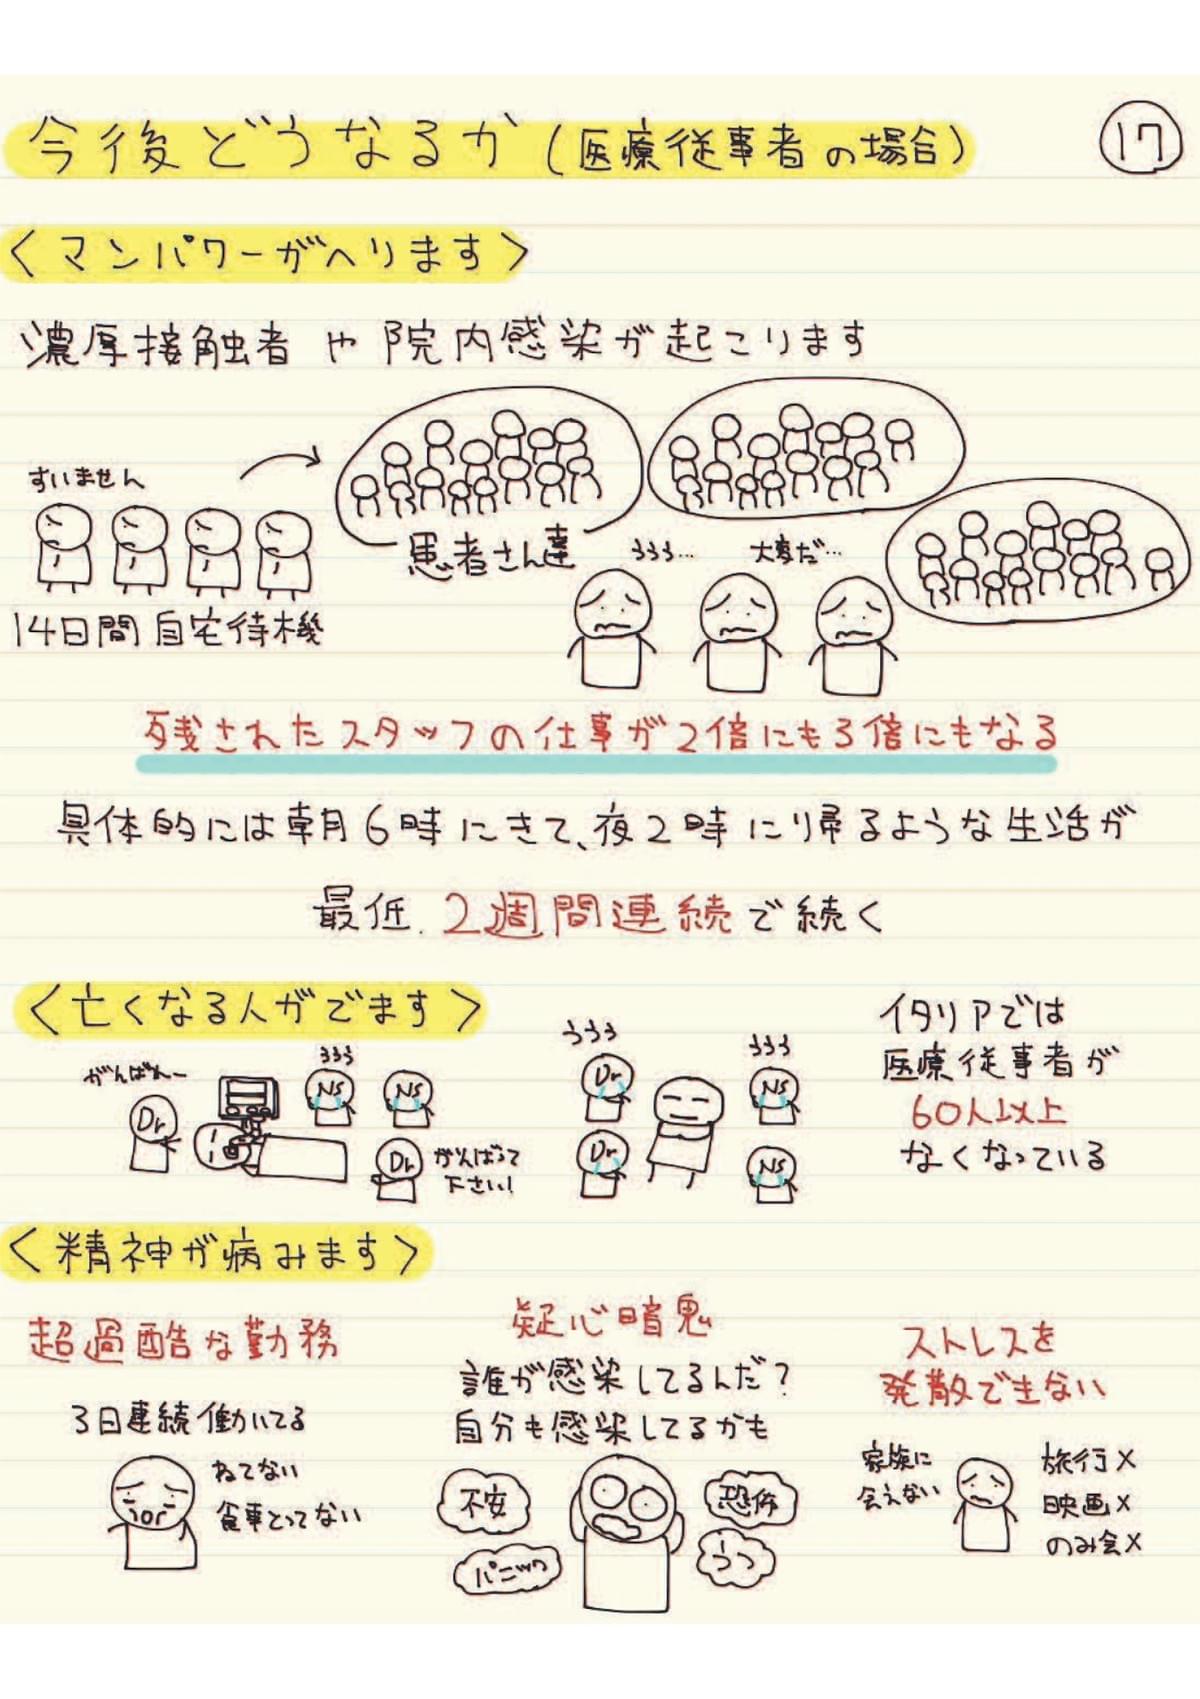 今後どうなるか(医療従事者の場合)
17
〈マンパワーがへります〉
濃厚接触者や院内感染が起こります
すいません
14日間自宅待機
患者さん達
ううう…
大変だ…
残されたスタッフの仕事が2倍にも3倍にもなる
具体的には朝6時にきて、夜2時に帰るような生活が
最低、2週間連続で続く
〈亡くなる人がでます〉
がんばれー
Dr
ううう
Ns
Ns
Dr
がんばって
下さい!
ううう
Dr
Dr
ううう
Ns
Ns
イタリアでは
医療従事者が
60人以上
なくなっている
〈精神が病みます〉
超過酷な勤務
3日連続働いてる
ねてない
食事とってない
疑心暗鬼
誰が感染してるんだ?
自分も感染してるかも
不安
パニック
恐怖
うつ
ストレスを
発散できない
家族に
会えない
旅行×
映画×
のみ会×